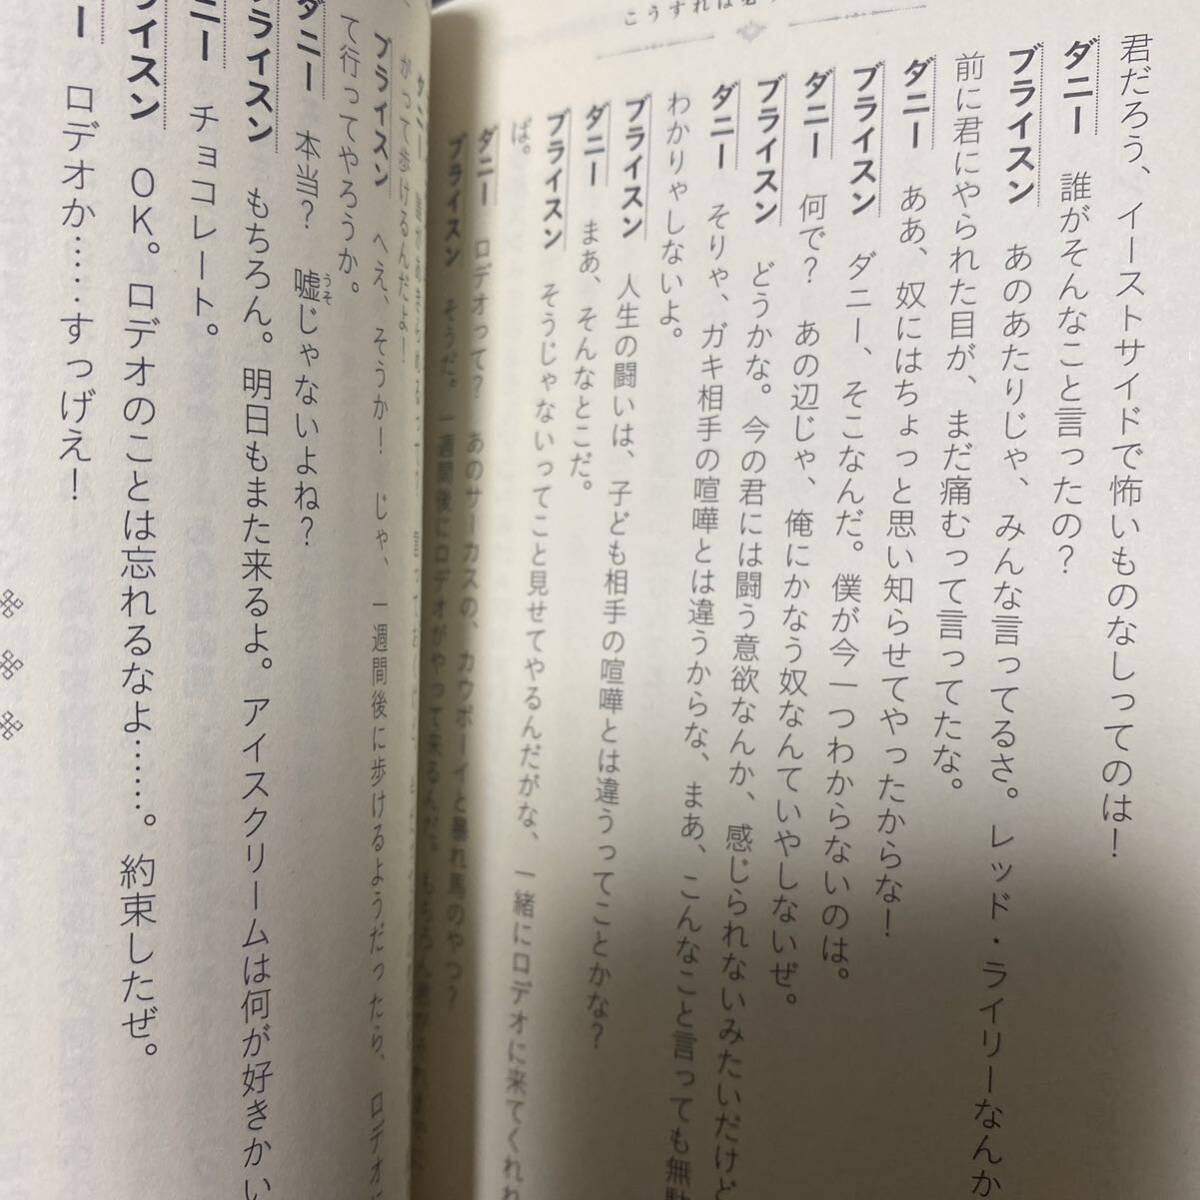 こうすれば必
君だろう、イーストサイドで怖いものなしってのは！
ダニー　誰がそんなこと言ったの？
ブライスン　あのあたりじゃ、みんな言ってるさ。レッド・ライリーなんか
前に君にやられた目が、まだ痛むって言ってたな。
ダニー　ああ、奴にはちょっと思い知らせてやったからな！
ブライスン　ダニー、そこなんだ。僕が今一つわからないのは。
ダニー　何で？　あの辺じゃ、俺にかなう奴なんていやしないぜ。
ブライスン　どうかな。今の君には闘う意欲なんか、感じられないみたいだけど
ダニー　そりゃ、ガキ相手の喧嘩とは違うからな、まあ、こんなこと言っても無駄
わかりゃしないよ。
ブライスン　人生の闘いは、子ども相手の喧嘩とは違うってことかな？
ダニー　まあ、そんなとこだ。
ブライスン　そうじゃないってこと見せてやるんだがな、一緒にロデオに来てくれれ
ば。
ダニー　ロデオって？　あのサーカスの、カウボーイと暴れ馬のやつ？
ブライスン　そうだ。一週間後にロデオがやって来るんだ。もちろん君が
ダニー
かって歩けるんだよ！
ブライスン　へえ、そうか！　じゃ、一週間後に歩けるようだったら、ロデオに
て行ってやろうか。
ダニー　本当？　嘘じゃないよね？
うそ
ブライスン　もちろん。明日もまた来るよ。アイスクリームは何が好きかい
ニー　チョコレート。
ライスン　OK。ロデオのことは忘れるなよ……。約束したぜ。
ー　ロデオか……すっげえ！